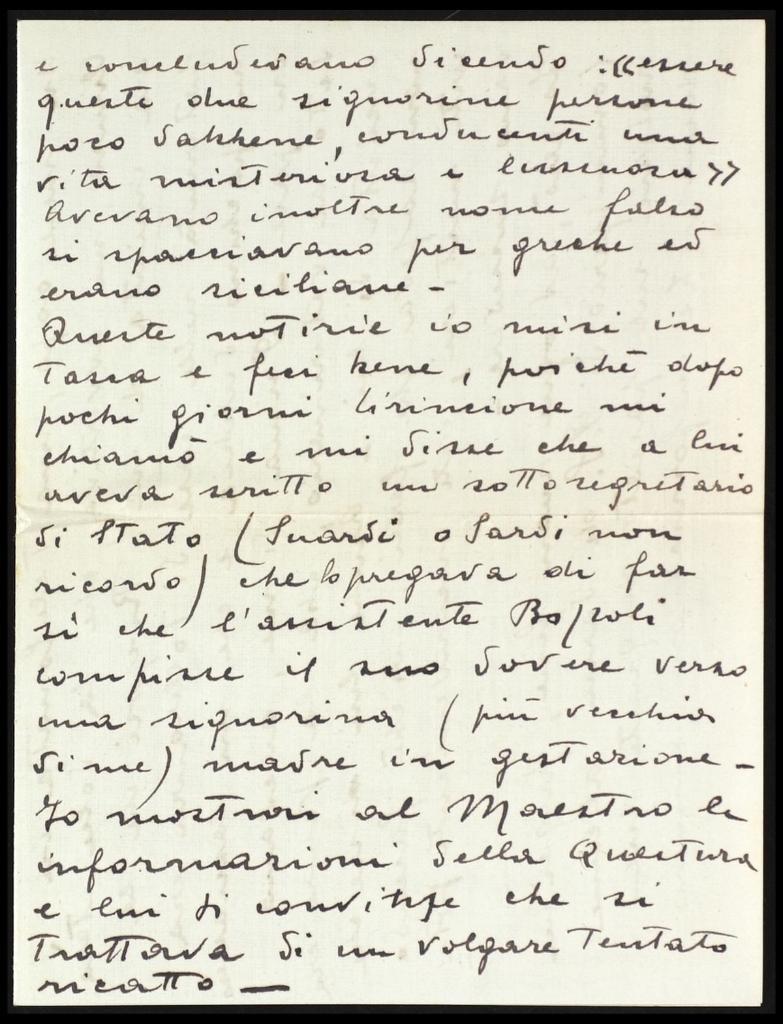 e concludevano dicendo : «essere
queste due signorine persone
poco dabbene, conducenti una
vita misteriosa e lussuosa»
Avevano inoltre nome falso
si spacciavano per greche ed
erano siciliane -
Queste notizie io misi in
tasca e feci bene, poichè dopo
pochi giorni
chiamò e mi disse che a lui
aveva scritto un sottosegretario
di Stato (Suardi o Sardi non
ricordo) che lo pregava di far
sì che l'assistente
compisse il suo dovere verso
una signorina (più vecchia
di me) madre in gestazione -
Io mostrai al Maestro le
informazioni della Questura
e lui si convinse che si
trattava di un volgare tentato
ricatto —